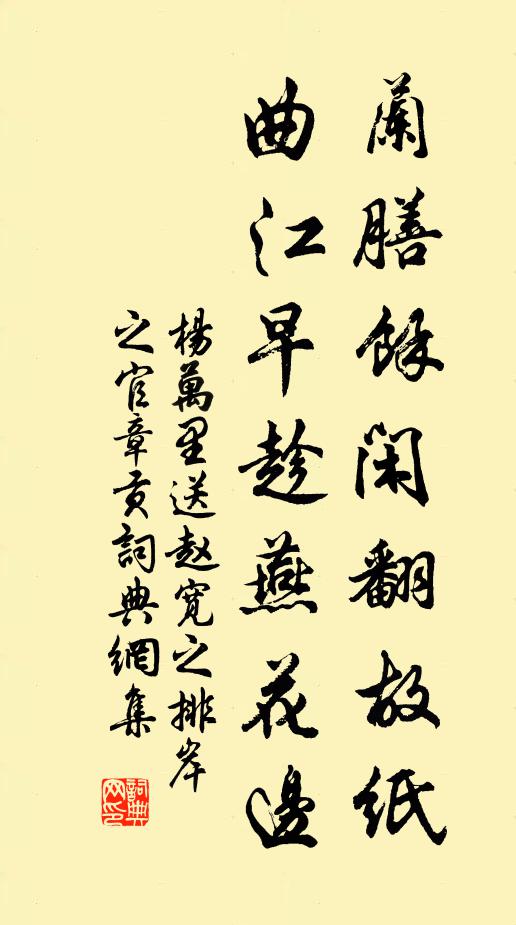 蘭膳餘閑翻故紙
曲江早趁燕花邊
楊萬里送赵寬之排岸
之官章贡詞典網集
詞典网印